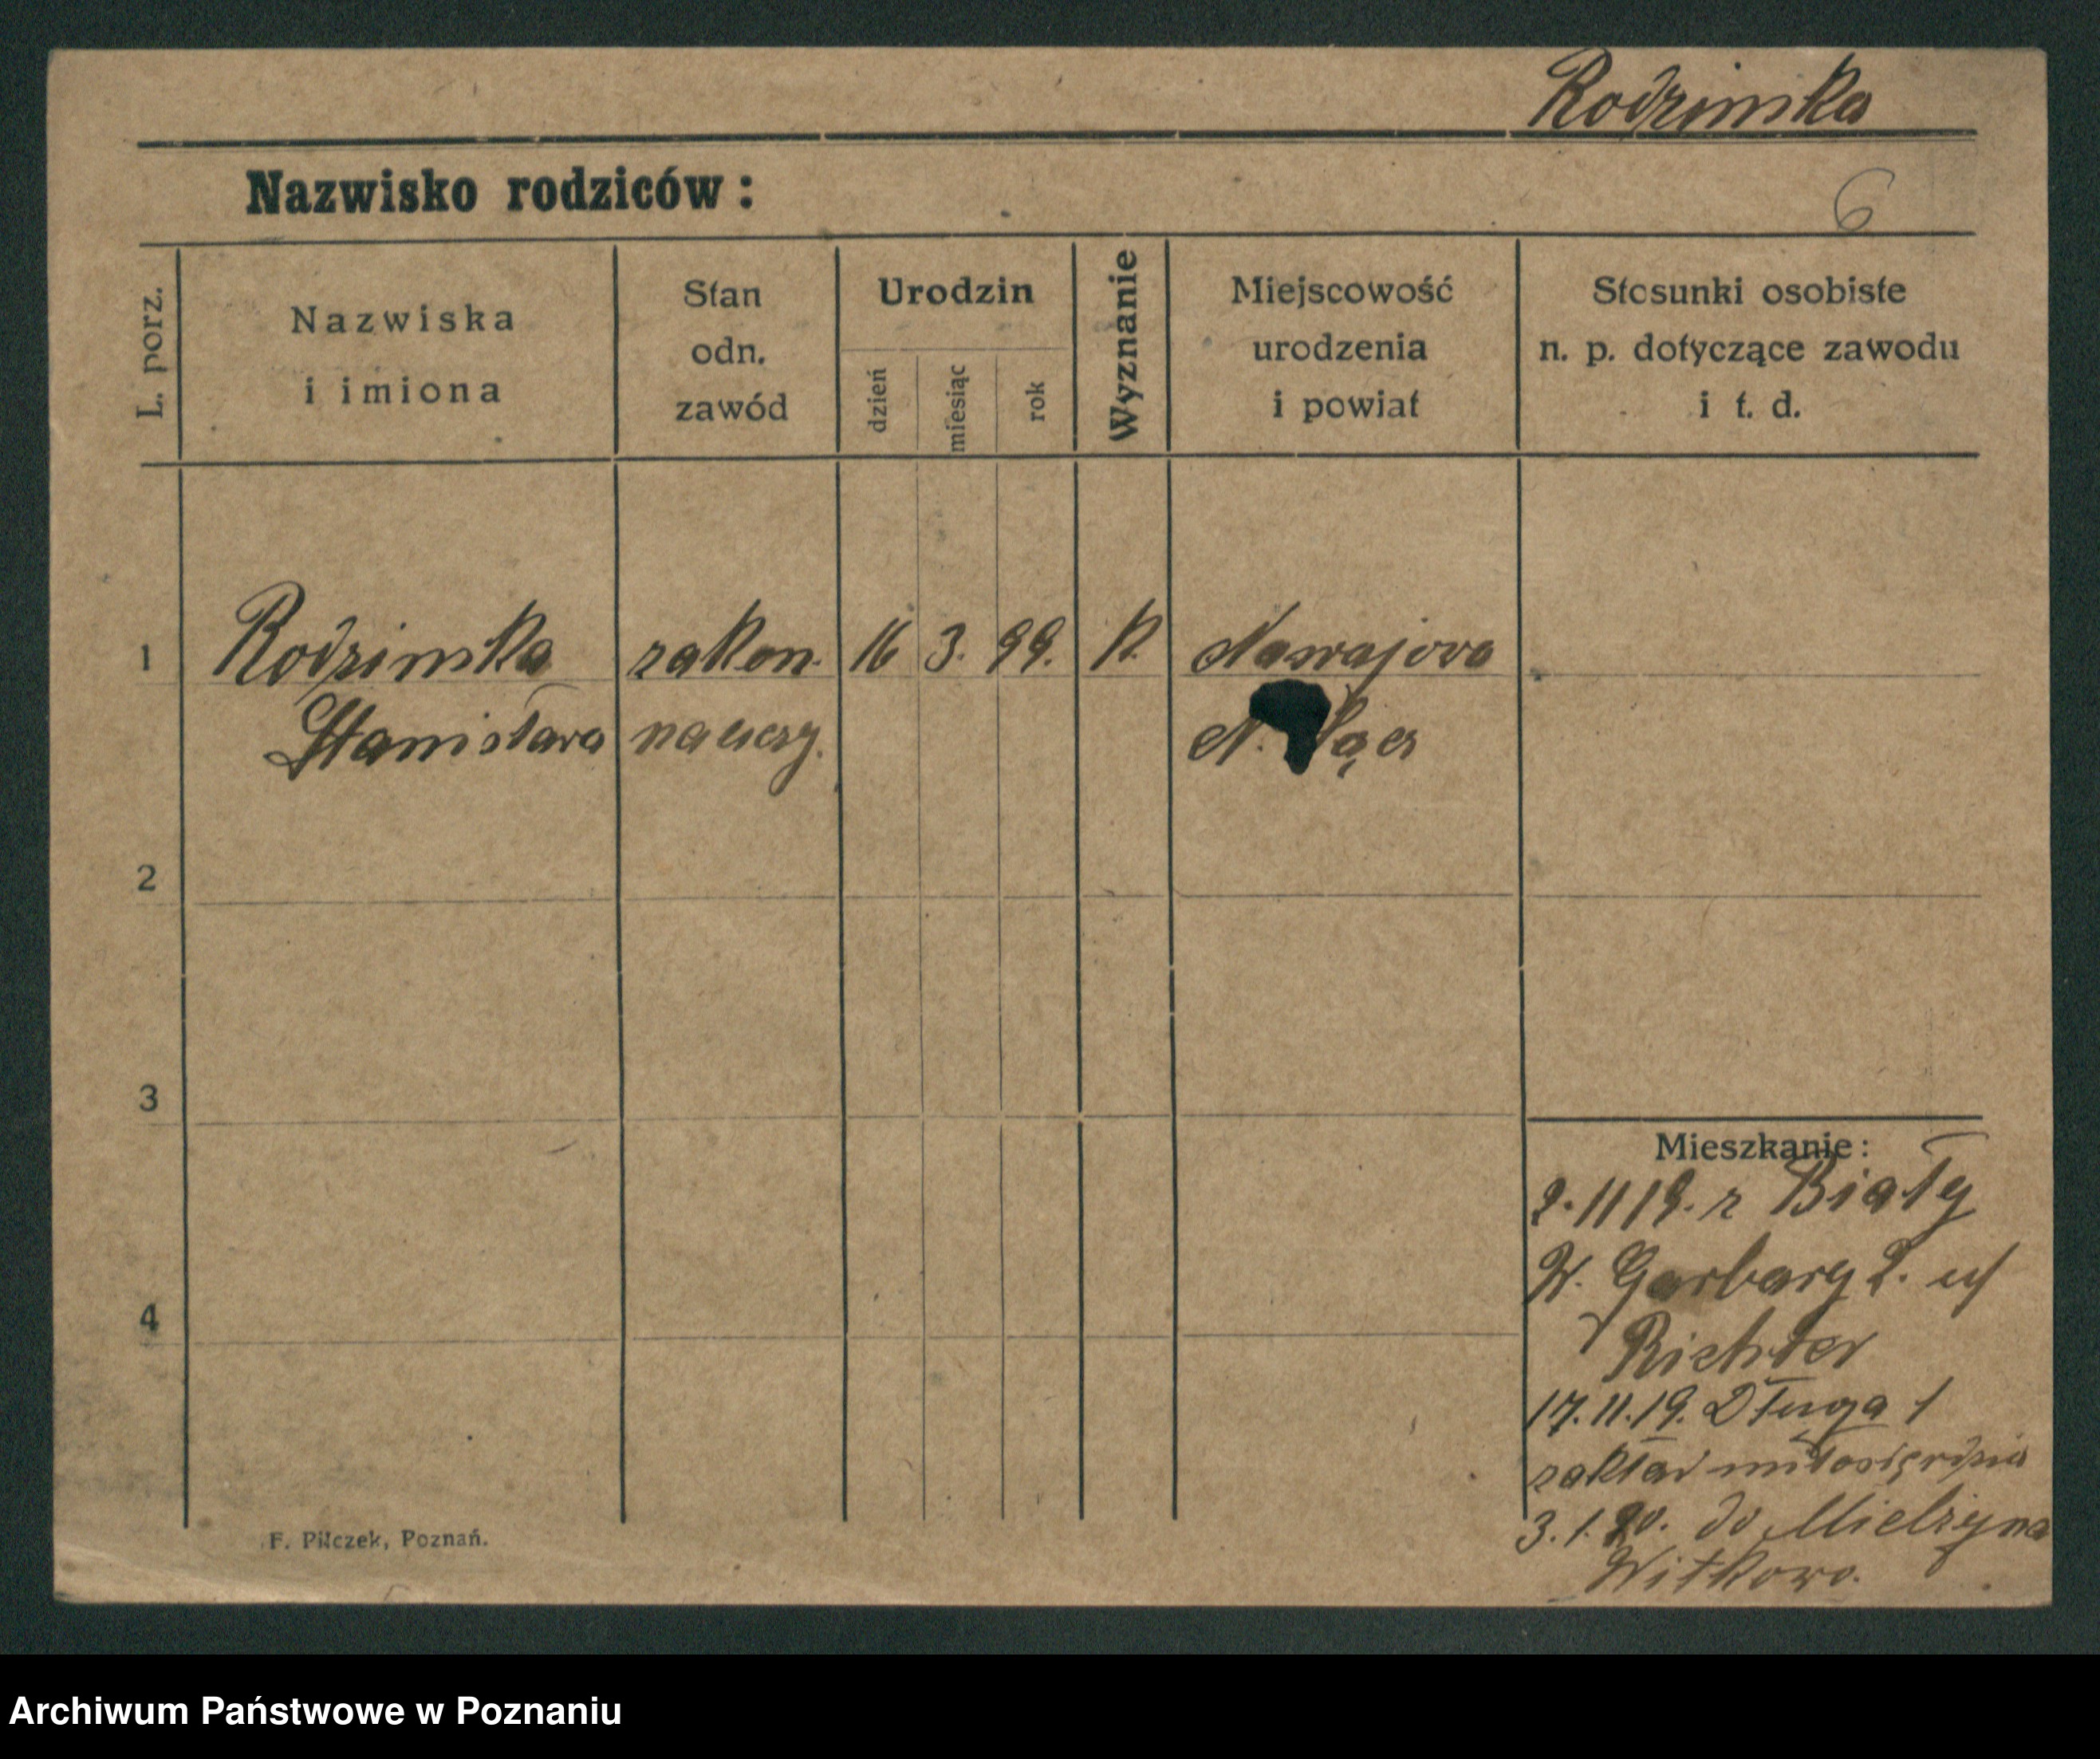 Rodzinska
Nazwisko rodziców :
6
L. porz.
Nazwiska
i imiona
Stan
odn.
zawód
Urodzin
dzień
miesiąc
rok
Wyznanie
Miejscowość
urodzenia
i powiat
Stosunki osobiste
n. p. dotyczące zawodu
i t. d.
1 Rodzinska zakon. 16 3. 99. k. Nawajova
Stanisłava nauczy. N. Sącz
2
3
4
Mieszkanie:
2.11 19. z Biały
W. Garbary 2. u/
Richter
17.11.19. Długa 1
zakład miłosierdzia
3.1.20. do Mielżyna
Witkowo.
F. Pilczek, Poznań.
Archiwum Państwowe w Poznaniu